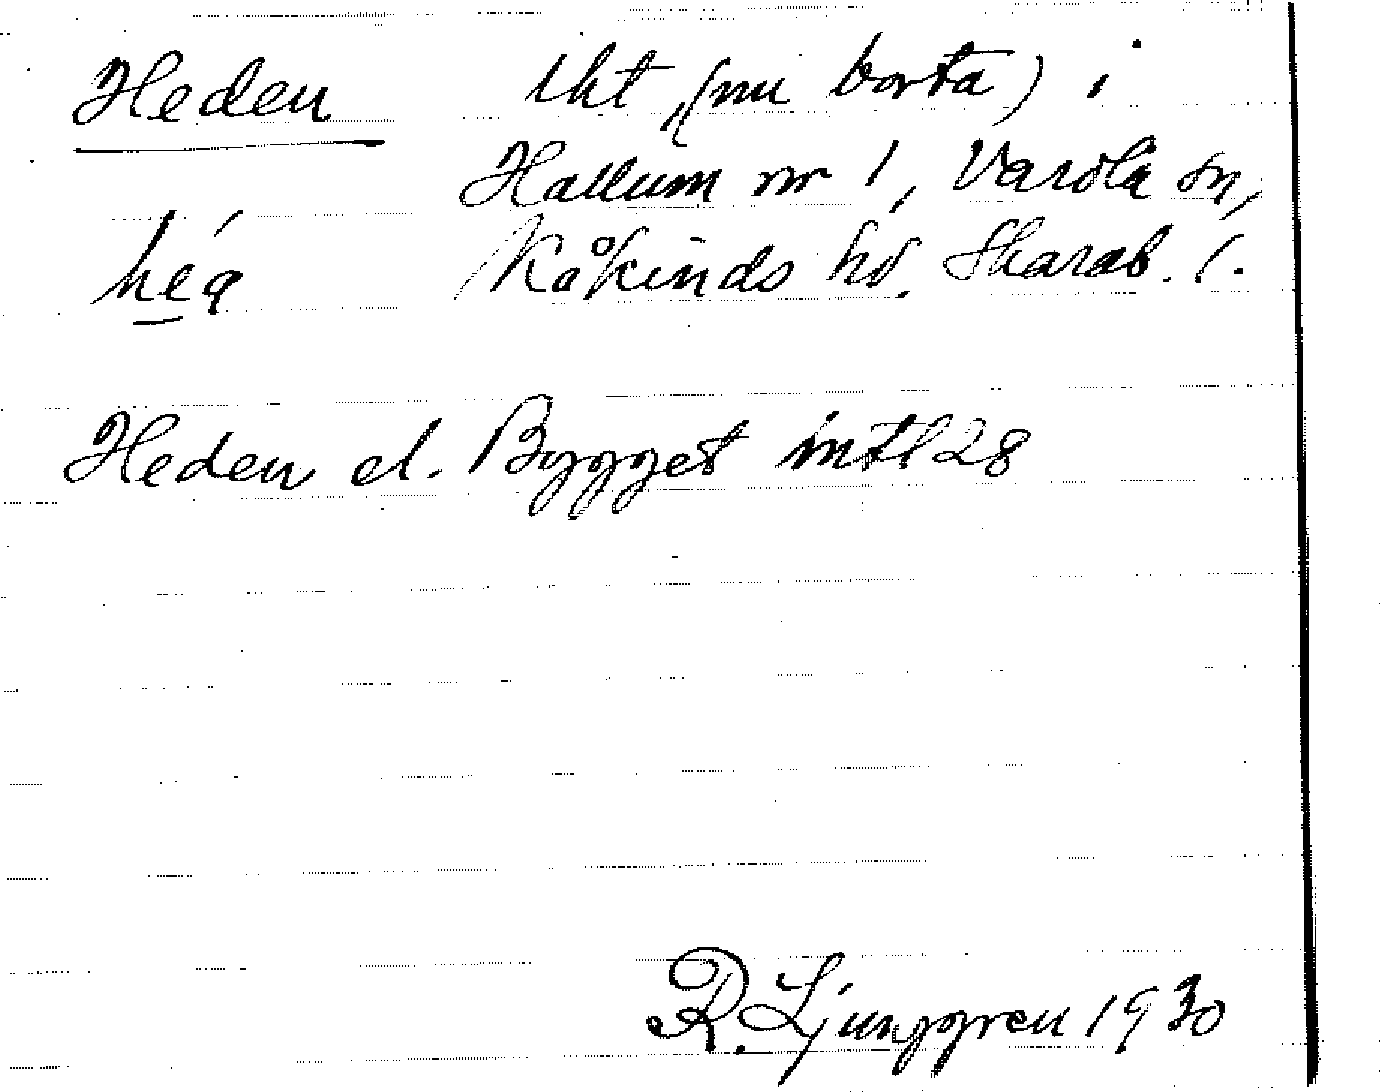 Heden lht (nu borta) i
Hallum nr 1, Varola sn,
héa Kåkinds hd. Skarab. l.
Heden el. Bygget mtl 28
R. Ljunggren 1930